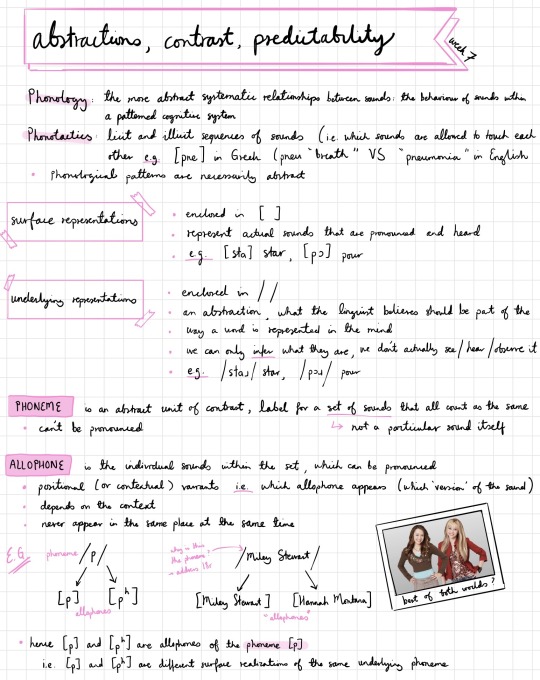 abstractions, contrast, predictability
week 7
Phonology: the more abstract systematic relationships between sounds: the behaviour of sounds within
a patterned cognitive system
Phonotactics: licit and illicit sequences of sounds (i.e. which sounds are allowed to touch each
other e.g. [pne] in Greek (pneu "breath" VS "pneumonia" in English
• Phonological patterns are necessarily abstract
surface representations
• enclosed in [ ]
• represent actual sounds that are pronounced and heard
• e.g. [sta] star, [pɔ] pour
underlying representations
• enclosed in / /
• an abstraction, what the linguist believes should be part of the
• way a word is represented in the mind
• we can only infer what they are, we don't actually see/hear/observe it
• e.g. /staɹ/ star, /pɔɹ/ pour
PHONEME is an abstract unit of contrast, label for a set of sounds that all count as the same
• can't be pronounced
↳ not a particular sound itself
ALLOPHONE is the individual sounds within the set, which can be pronounced
• positional (or contextual) variants i.e. which allophone appears (which 'version' of the sound)
• depends on the context
• never appear in the same place at the same time
E.G. phoneme /p/
[p] [pʰ]
allophones
why is this
the phoneme?
→ address l8r
/Miley Stewart/
[Miley Stewart] [Hannah Montana]
"allophones"
best of both worlds?
• hence [p] and [pʰ] are allophones of the phoneme [p]
i.e. [p] and [pʰ] are different surface realizations of the same underlying phoneme